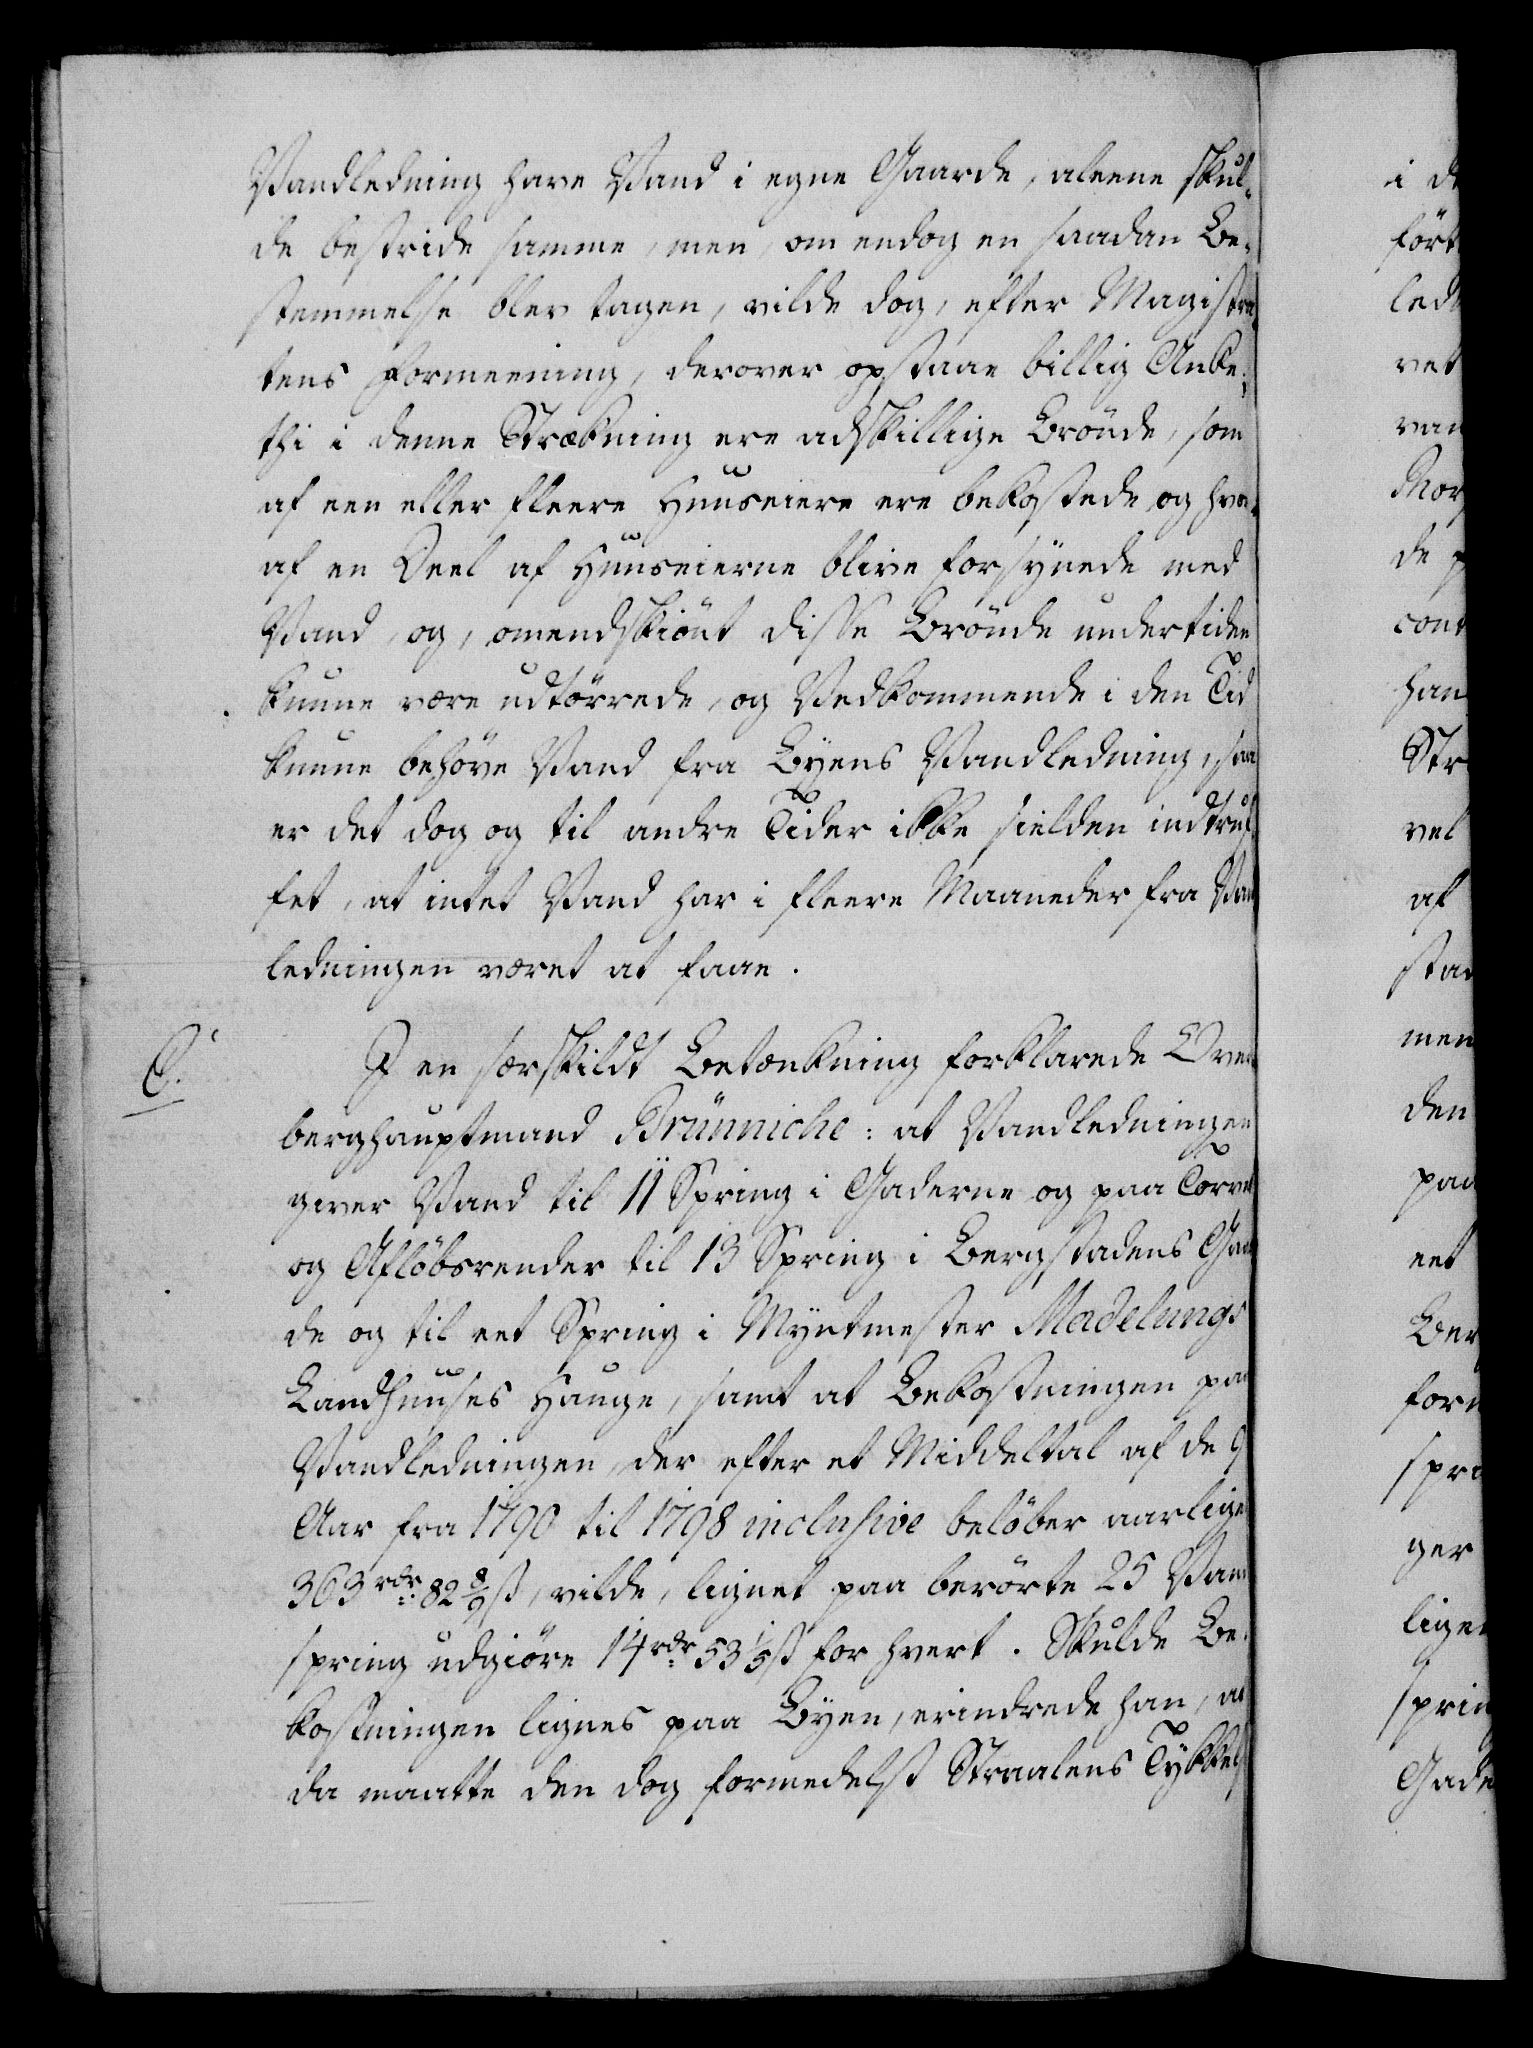 Vandledning have Vand i egne Gaarde, aleene skul-
de bestride samme, men, om endog en saadan Be-
stemmelse blev tagen, vilde dog, efter Magistra
tens Formeening, derover opstaae billig Anke;
thi i denne Strækning ere adskillige Brönde, som
af een eller fleere Huuseiere ere bekostede og hvor
af en Deel af Huuseierne blive forsynede med
Vand, og, omendskiönt disse Brönde undertiden
kunne være udtörrede, og Vedkommende i den Tid
kunne behöve Vand fra Byens Vandledning, saa
er det dog og til andre Tider ikke sielden indtruf
fet, at intet Vand har i fleere Maaneder fra Van
ledningen været at faae.
C.
I en særskildt Betænkning forklarede Over
berghauptmand Brünniche: at Vandledningen
giver Vand til 11 Spring i Gaderne og paa Torvet
og Aflöbsrender til 13 Spring i Bergstadens Gaar
de og til eet Spring i Myntmester Madelungs
Landhuuses Hauge, samt at Bekostningen paa
Vandledningen, der efter et Middeltal af de 9
Aar fra 1790 til 1798 inclusive belöber aarligen
363 rdr 82 8/9 ß, vilde, lignet paa berörte 25 Vand
spring udgiöre 14 rdr 53 1/5 ß for hvert. Skulde Be-
kostningen lignes paa Byen, erindrede han, at
da maatte den dog formedelst Straalens Tykkels
i de
fört
lede
vet
van
de p
cont
han
Str
vel
af
stad
men
den
paa
eet
Ber
form
spri
ger
ligen
sprin
Gade